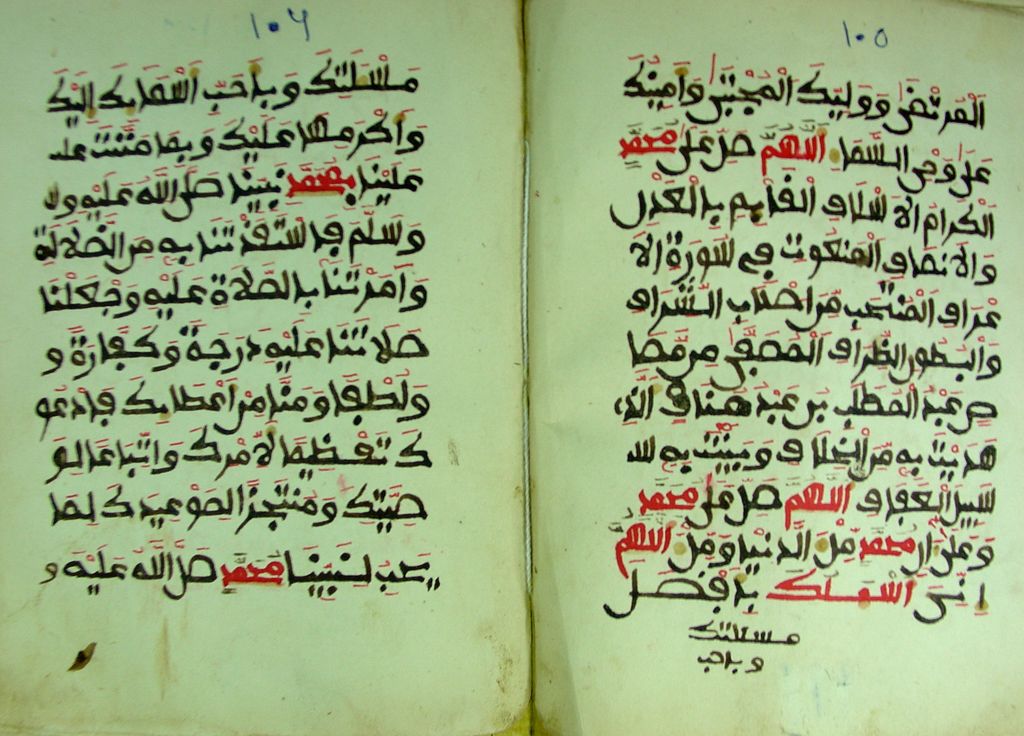 ١٠٥
المرتضى ووليك المجتبى وأمينك
على وحي السما اللهم صل على محمد
الكرام الاسلاف القايم بالعدل
والانصاف المنعوت في سورة الا
عراف المنتخب من اصلاب الشراف
والبطون الظراف المصفى من مصا
ص عبد المطلب بن عبد مناف الذي
هديت به من الخلاف وبينت به
سبيل العفاف اللهم صل على محمد
وعلى ال محمد من الدنيا ومن اللهم
اني اسملك بافضل
مسئلتك
وباحب
١٠٦
مسئلتك وباحب اسمايك اليك
واكرمها عليك وبما مننت
علينا بمحمد نبينا صلى الله عليه
وسلم فاستنقذتنا به من الضلالة
وامرتنا بالصلاة عليه وجعلنا
صلاتنا عليه درجة وكفارة و
ولطفا ومنا من اعطايك فادعو
ك تعظيما لامرك واتباعا لو
صيتك ومنتجزا لموعيدك لما
يجب لنبينا محمد صلى الله عليه و